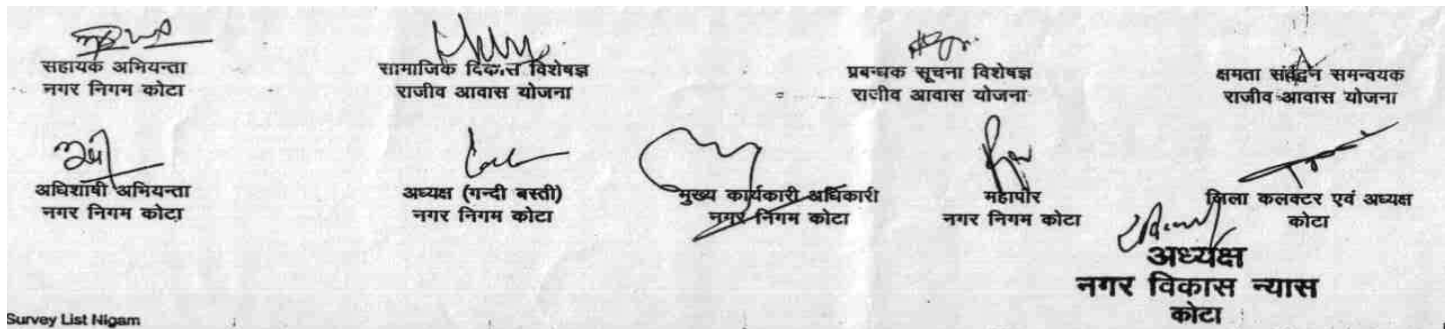 सहायक अभियन्ता
नगर निगम कोटा
सामाजिक विकास विशेषज्ञ
राजीव आवास योजना
प्रबन्धक सूचना विशेषज्ञ
राजीव आवास योजना
क्षमता संर्द्धन समन्वयक
राजीव आवास योजना
अधिशाषी अभियन्ता
नगर निगम कोटा
अध्यक्ष (गन्दी बस्ती)
नगर निगम कोटा
मुख्य कार्यकारी अधिकारी
नगर निगम कोटा
महापौर
नगर निगम कोटा
जिला कलक्टर एवं अध्यक्ष
कोटा
अध्यक्ष
नगर विकास न्यास
कोटा
Survey List Nigam